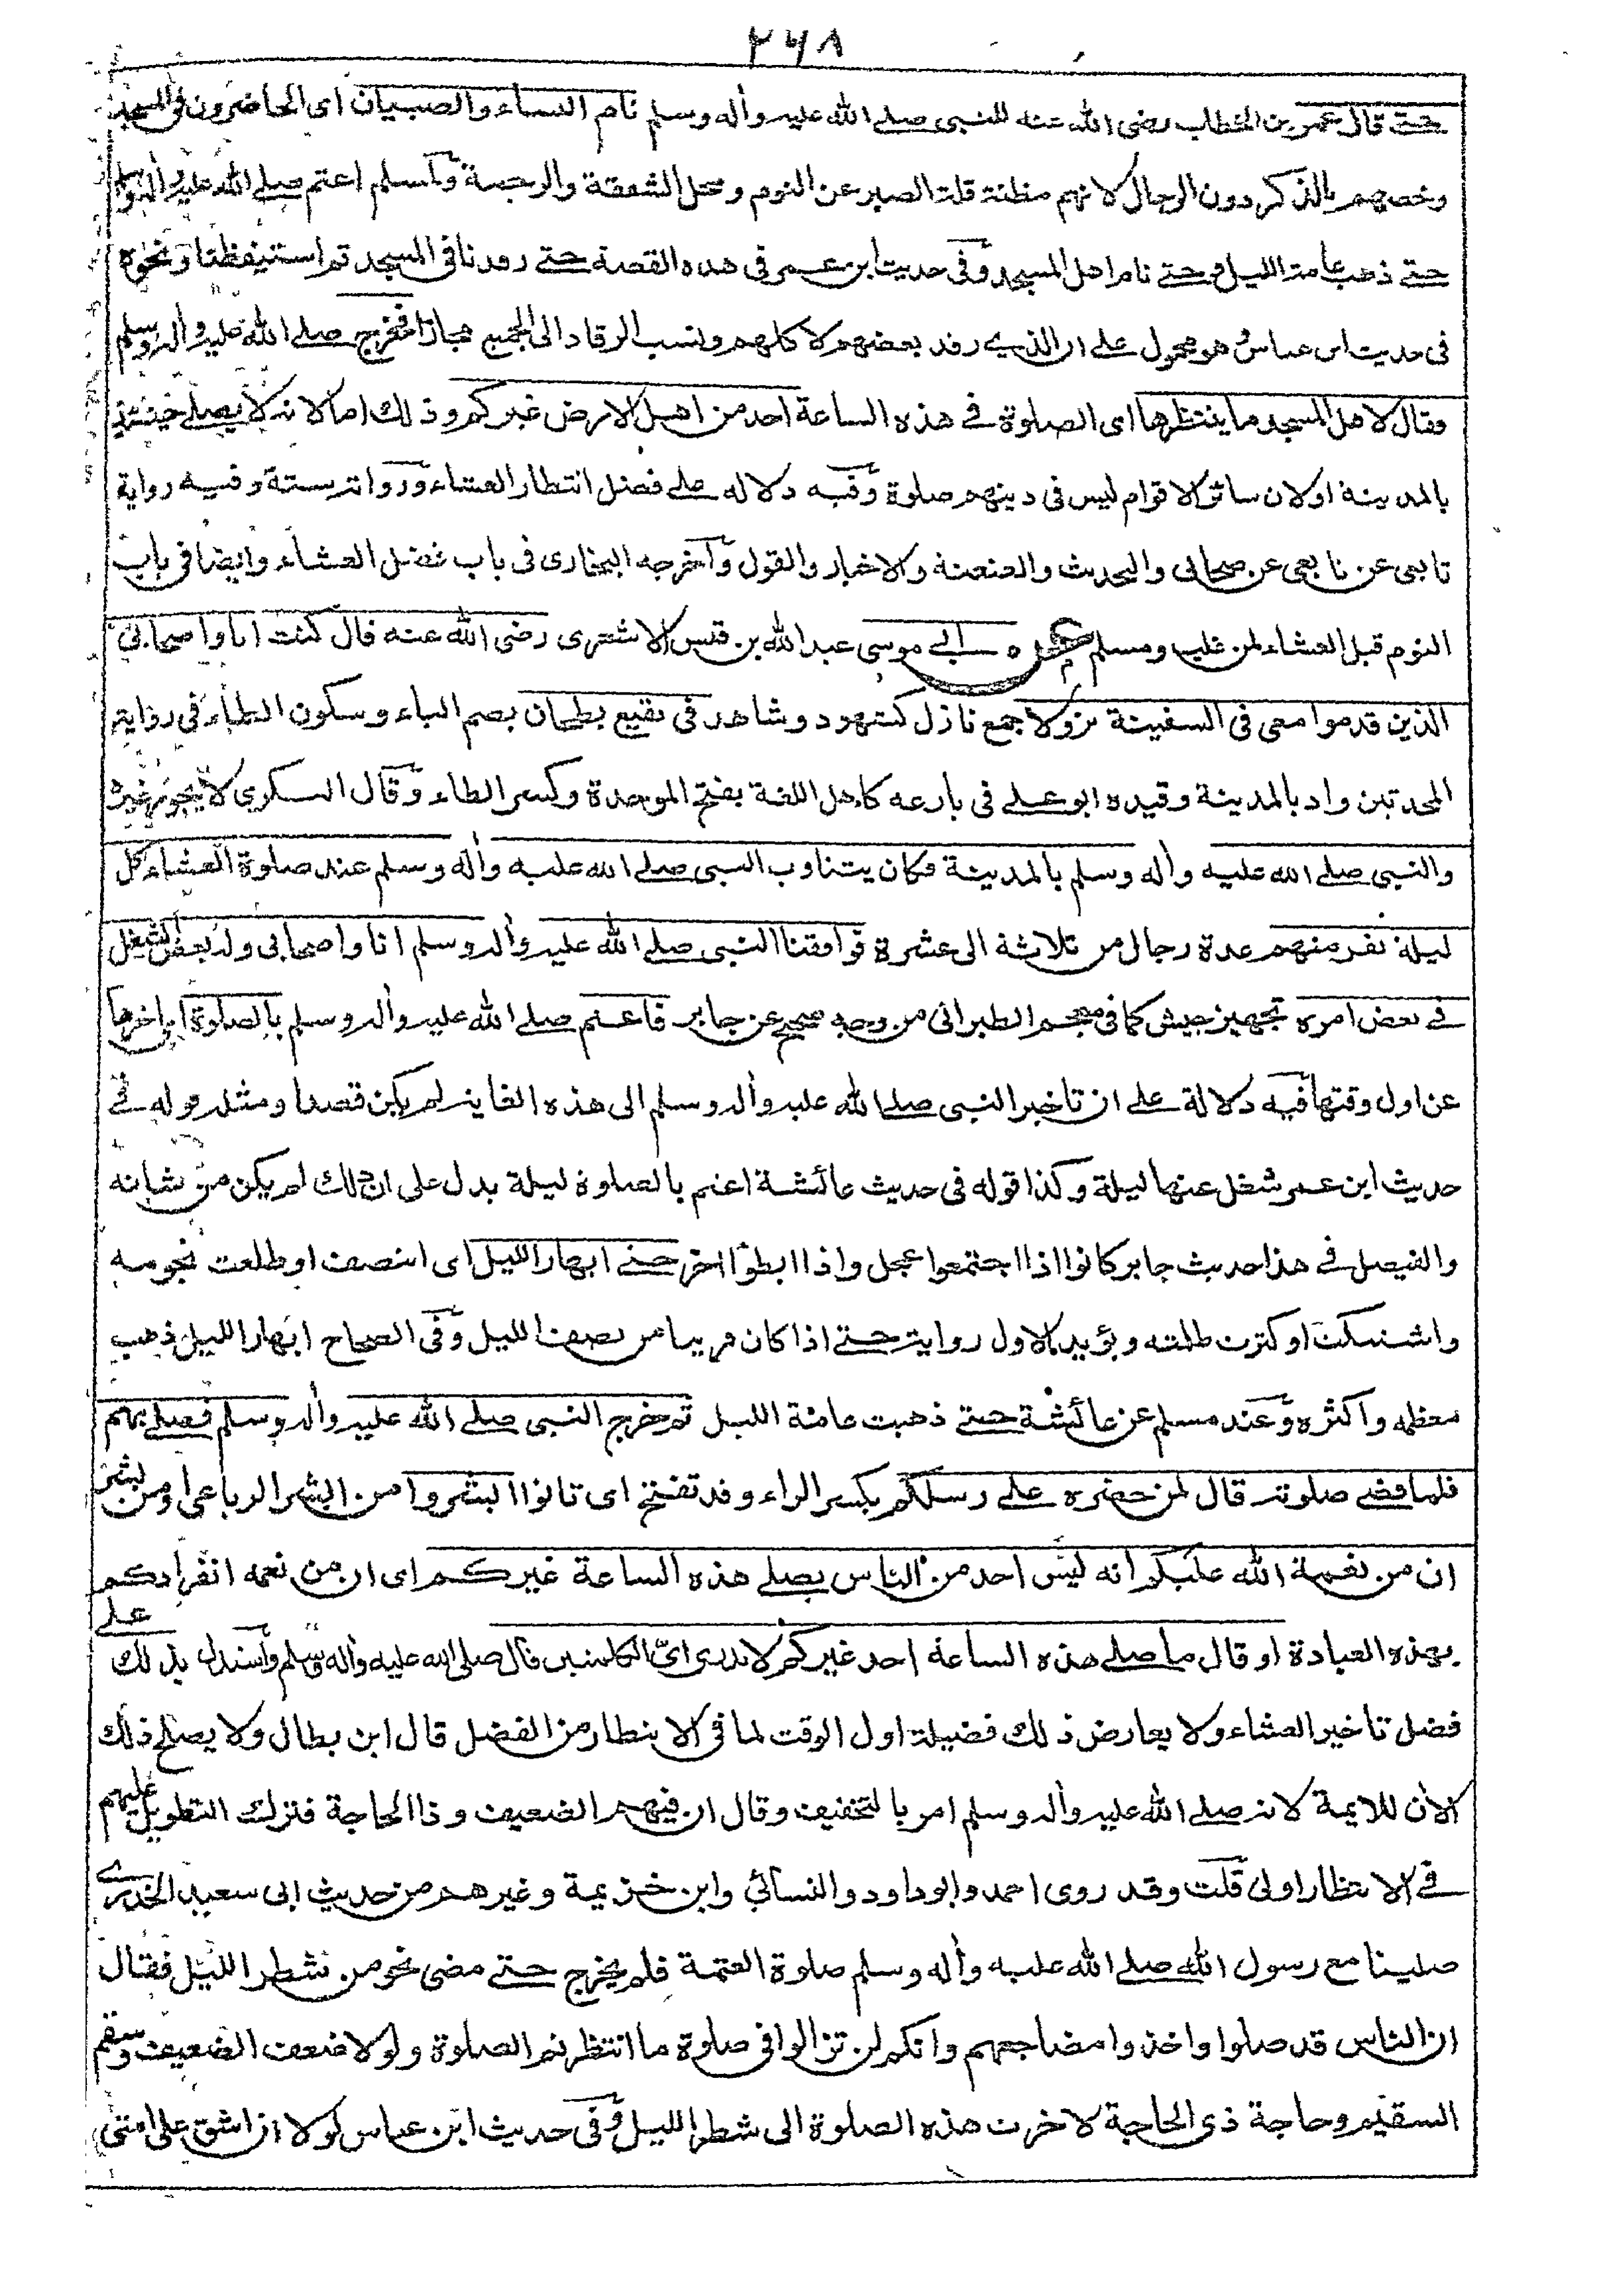 ٢٦٨
حتى قال عمر بن الخطاب رضى الله عنه للنبى صلے الله عليه وأله وسلم نام النساء والصبيان اى الحاضرون فى المسجد
وخصهم بالذكر دون الرجال لانهم مظنة قلة الصبر عن النوم ومحل الشفقة والرحمة ولمسلم اعتم صلے الله عليه وأله وسلم
حتے ذهب عامة الليل وحتے نام اهل المسجد وفى حديث ابن عمر فى هذه القصة حتے رقدنا فى المسجد ثم استيقظنا ونحوه
فى حديث ابن عباس وهو محمول علے ان الذي رقد بعضهم لا كلهم ونسب الرقاد الى الجميع مجازا فخرج صلے الله عليه وأله وسلم
وقال لاهل المسجد ما ينتظرها اى الصلوة فے هذه الساعة احد من اهل الارض غيركم وذلك اما لانه لا يصلے حينئذ
بالمدينة او لان سائر الاقوام ليس فى دينهم صلوة وفيه دلالة علے فضل انتظار العشاء ورواته ستة وفيه رواية
تابعى عن تابعى عن صحابى والتحديث والعنعنة والاخبار والقول وأخرجه البخارى فى باب فضل العشاء وايضا فى باب
النوم قبل العشاء لمن غلب ومسلم ابے موسى عبد الله بن قيس الاشعرى رضى الله عنه قال كنت انا واصحابى
الذين قدموا معى فى السفينة نزولا جمع نازل كشهود وشاهد فى بقيع بطحان بضم الباء وسكون الطاء فى رواية
المحدثين واد بالمدينة وقيده ابو علے فى بارعه كاهل اللغة بفتح الموحدة وكسر الطاء وقال السكري لا يجوز غيره
والنبى صلے الله عليه وأله وسلم بالمدينة فكان يتناوب النبى صلے الله عليه وأله وسلم عند صلوة العشاء كل
ليلة نفر منهم عدة رجال من ثلاثة الى عشرة فوافقنا النبى صلے الله عليه وأله وسلم انا واصحابى وله بعض الشغل
فے بعض امره تجهيز جيش كما فى معجم الطبرانى من وجه صحيح عن جابر فاعتم صلے الله عليه وأله وسلم بالصلوة اى اخرها
عن اول وقتها فيه دلالة علے ان تاخير النبى صلے الله عليه وأله وسلم الى هذه الغاية لم يكن قصدا ومثله قوله فے
حديث ابن عمر شغل عنها ليلة وكذا قوله فى حديث عائشة اعتم بالصلوة ليلة يدل على ان ذلك لم يكن من شانه
والفيصل فے هذا حديث جابر كانوا اذا اجتمعوا عجل واذا ابطؤا اخر حتے ابهار الليل اى انتصف او طلعت نجومه
واشتبكت او كثرت ظلمته ويؤيد الاول رواية حتے اذا كان قريبا من نصف الليل وفى الصحاح ابهار الليل ذهب
معظمه واكثره وعند مسلم عن عائشة حتے ذهبت عامة الليل ثم خرج النبى صلے الله عليه وأله وسلم فصلے بهم
فلما قضے صلوته قال لمن حضره علے رسلكم بكسر الراء وقد تفتح اى تانوا ابشروا من البشر الرباعى او من بشر
ان من نعمة الله عليكم انه ليس احد من الناس يصلے هذه الساعة غيركم اى ان من نعمه انفرادكم
بهذه العبادة او قال ما صلے هذه الساعة احد غيركم لا ندرى اىّ الكلمتين قال صلى الله عليه وأله وسلم وأستدل بذلك علے
فضل تاخير العشاء ولا يعارض ذلك فضيلة اول الوقت لما فى الانتظار من الفضل قال ابن بطال ولا يصلح ذلك
الأن للايمة لانه صلے الله عليه وأله وسلم امر بالتخفيف وقال ان فيهم الضعيف وذا الحاجة فترك التطويل عليهم
فے الانتظار اولى قلت وقد روى احمد وابو داود والنسائي وابن خزيمة وغيرهم من حديث ابى سعيد الخدري
صلينا مع رسول الله صلے الله عليه وأله وسلم صلوة العتمة فلم يخرج حتے مضى نحو من شطر الليل فقال
ان الناس قد صلوا واخذوا مضاجعهم وانكم لن تزالوا فى صلوة ما انتظرتم الصلوة ولولا ضعف الضعيف وسقم
السقيم وحاجة ذى الحاجة لاخرت هذه الصلوة الى شطر الليل وفى حديث ابن عباس لولا ان اشق على امتى